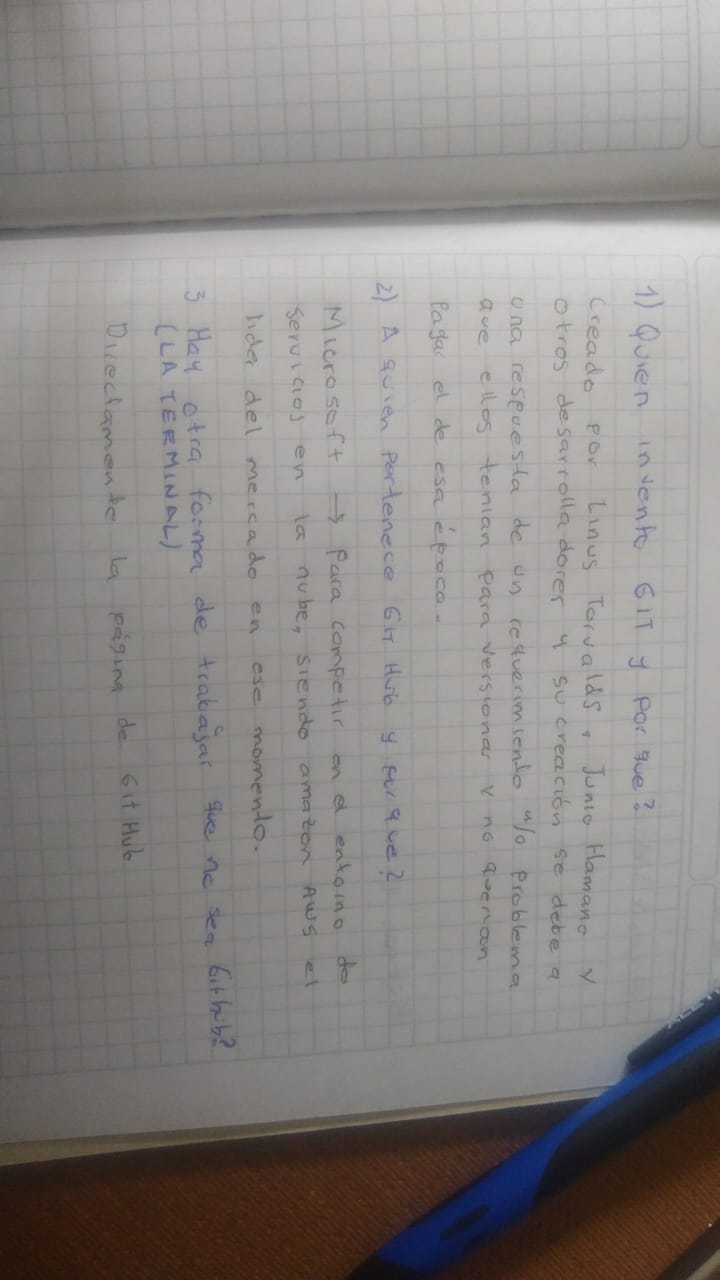 1) Quien invento GIT y por que?
Creado por Linus Torvalds, Junio Hamano y
otros desarrolladores y su creación se debe a
una respuesta de un requerimiento y/o problema
que ellos tenian para versionar y no querian
pagar el de esa época.
2) A quien pertenece Git Hub y por que?
Microsoft → Para competir en el entorno de
servicios en la nube, siendo amazon AWS el
lider del mercado en ese momento.
3 Hay otra forma de trabajar que no sea Githib?
(LA TERMINAL)
Directamente la página de Git Hub